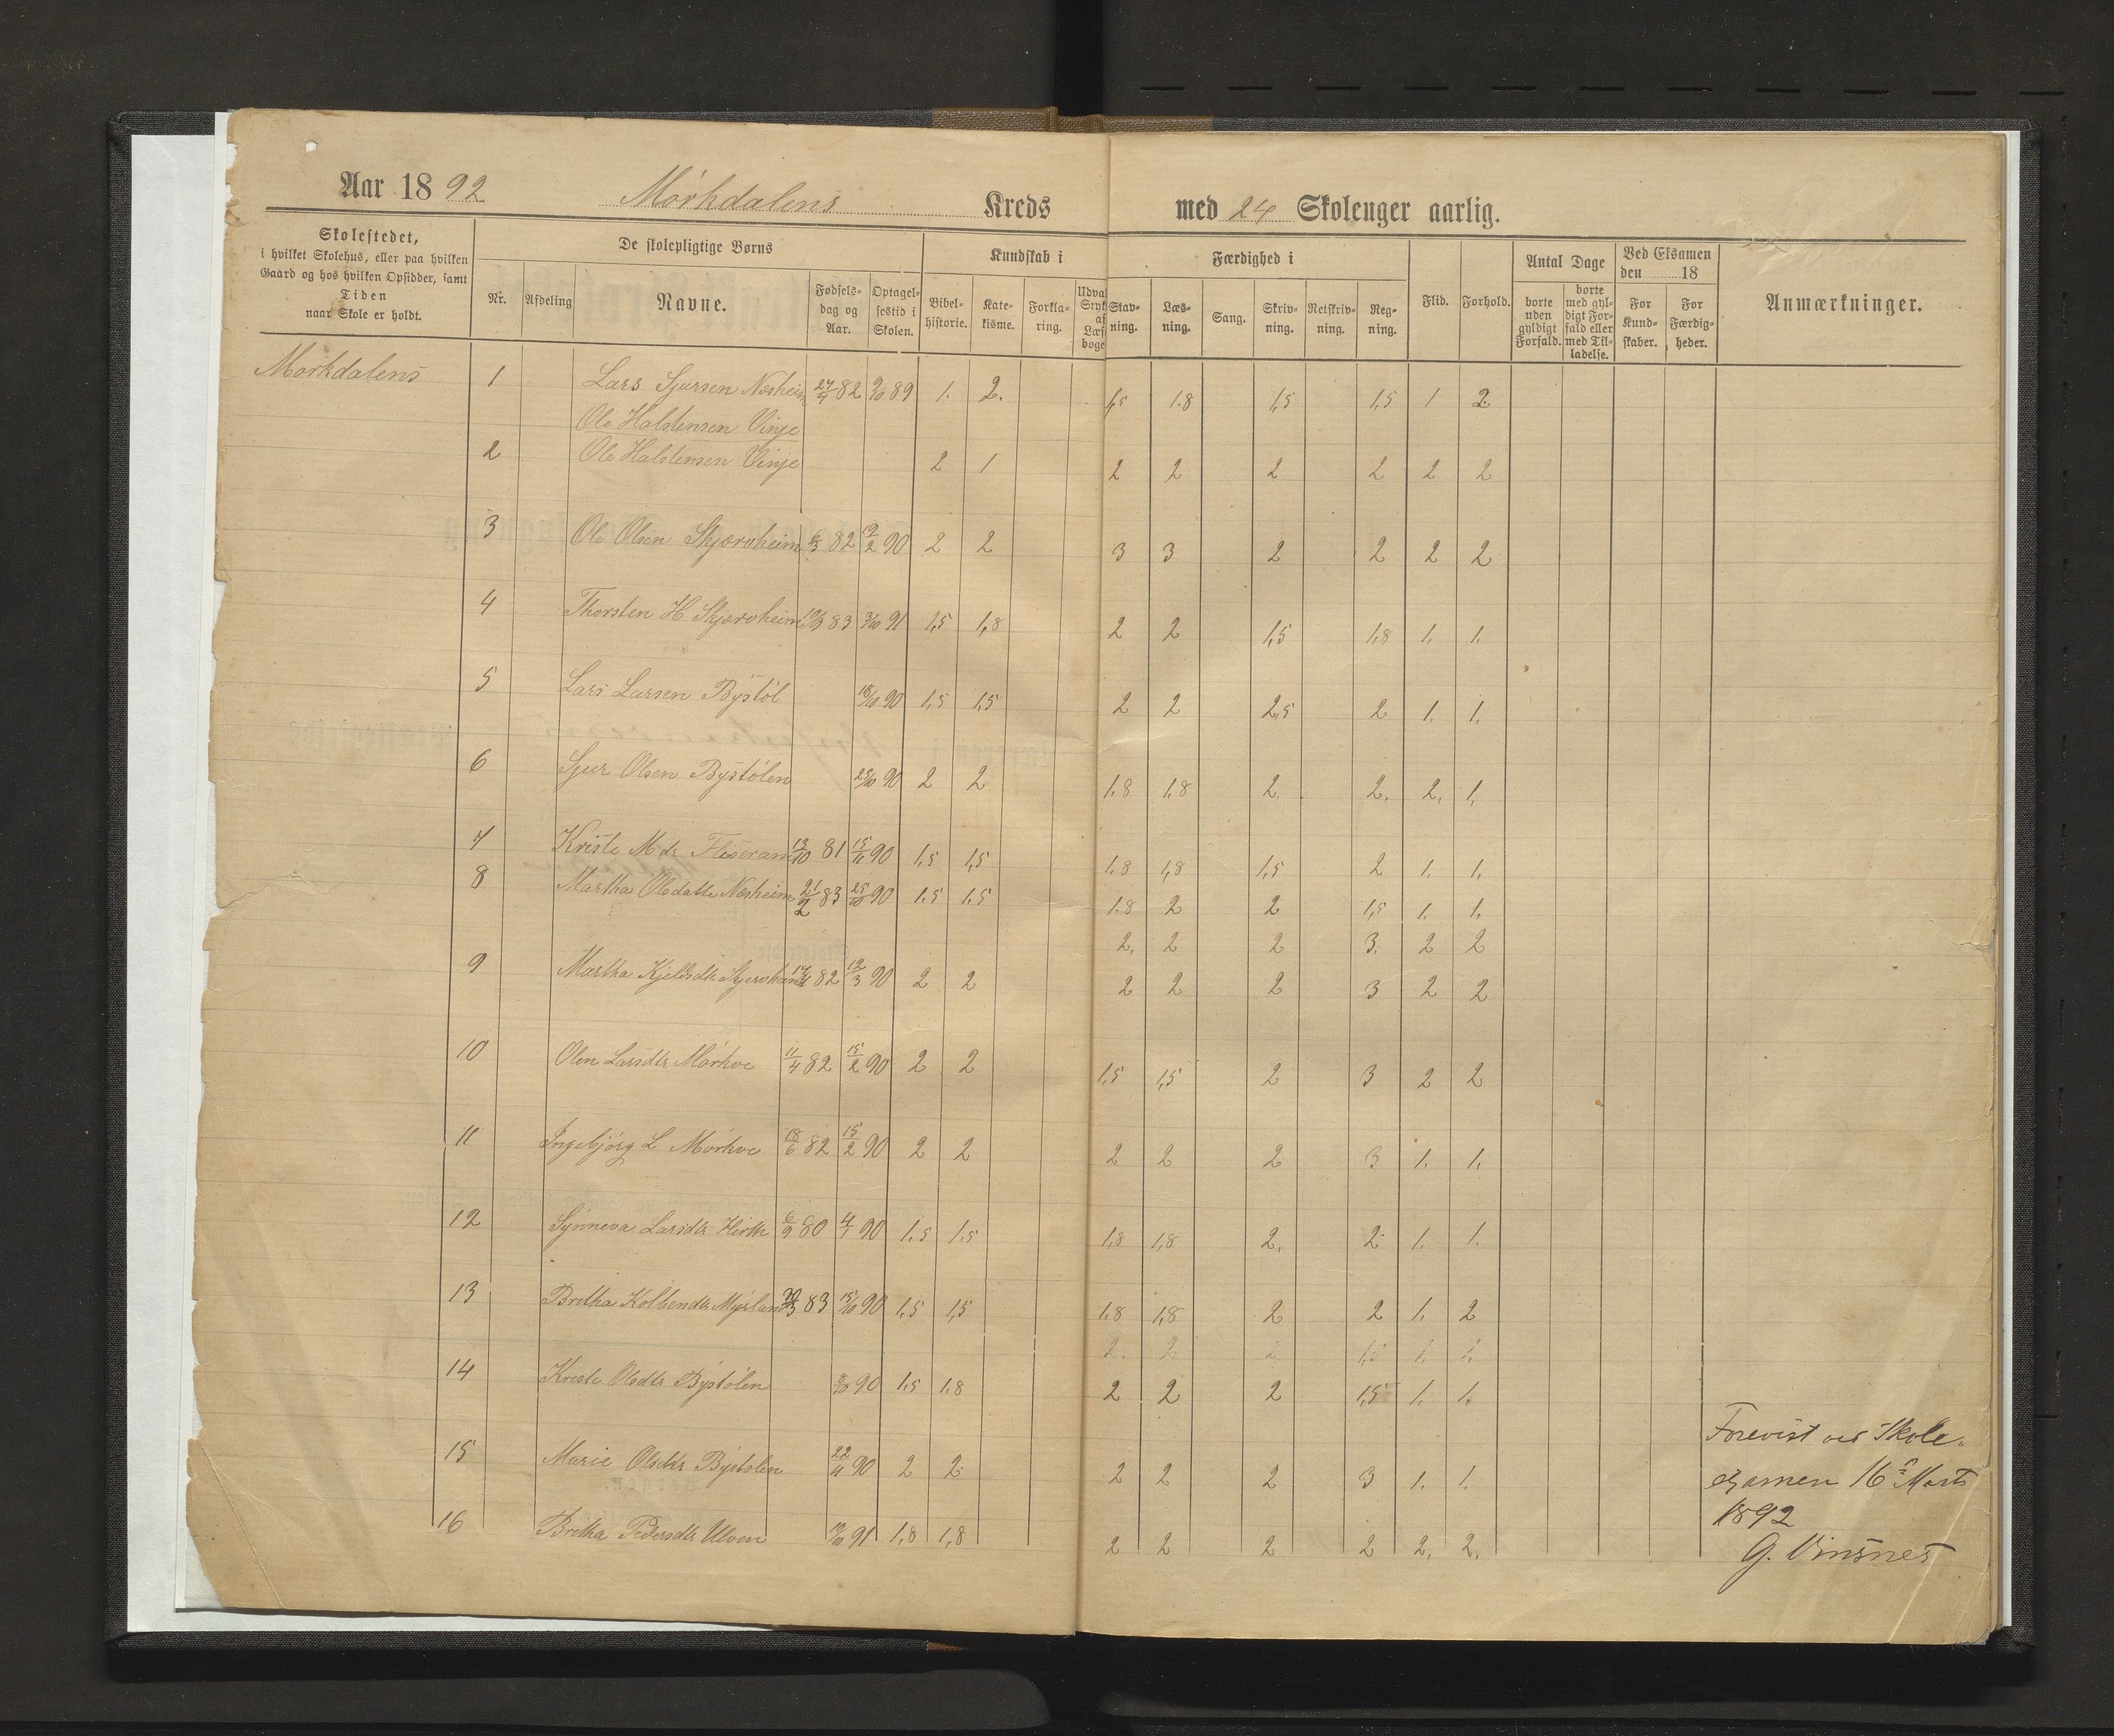 Aar 1892 Mørkdalens Kreds med 24 Skoleuger aarlig.
Skolestedet,
i hvilket Skolehus, eller paa hvilken
Gaard og hos hvilken Opsidder, samt
Tiden
naar Skole er holdt.
De skolepligtige Børns
Nr. Afdeling Navne. Fødselsdag og Aar. Optagelsestid i Skolen.
Kundskab i
Bibelhistorie. Katekisme. Forklaring. Udva Styk af Læse boge
Færdighed i
Stavning. Læsning. Sang. Skrivning. Retskrivning. Regning.
Flid. Forhold.
Antal Dage
borte uden gyldigt Forfald. borte med gyldigt Forfald eller med Tilladelse.
Ved Eksamen
den 18
For Kundskaber. For Færdigheder.
Anmærkninger.
Mørkdalens 1 Lars Sjursen Næsheim 27/4 82 2/10 89 1. 2. 1,5 1.8 1,5 1,5 1 2
Ole Halstensen Vinje
2 Ole Halstensen Vinje 2 1 2 2 2 2 2 2
3 Ole Olsen Skjærvheim 82 12/2 90 2 2 3 3 2 2 2 2
4 Thorsten H Skjærvheim 83 3/10 91 1,5 1,8 2 2 1,5 1,8 1. 1.
5 Lars Larsen Bystøl 18/10 90 1,5 1,5 2 2 2,5 2 1. 1.
6 Sjur Olsen Bystølen 25/10 90 2 2 1.8 1.8 2. 2. 2. 1.
7 Kriste M dr 13/10 81 15/11 90 1,5 1,5 1.8 1,8 1,5 2 1. 1.
8 Martha Olsdatte Næsheim 21/2 83 25/10 90 1.5 1.5 1.8 2 2 1,5 1. 1.
2. 2 2 3. 2 2
9 Martha Kjeldsdtr Skjervheim 82 12/3 90 2 2 2 2 2 3 2 2
10 Olen Larsdtr Mørkve 11/4 82 15/2 90 2 2 1,5 1,5 2 3 2 2
11 Ingebjørg L Mørkve 18/6 82 15/2 90 2 2 2 2 2 3 1. 1.
12 Synneva Larsdtr 6/9 80 4/1 90 1.5 1.5 1,8 1,8 2. 2 1. 1.
13 Bretha Kolbendtr Myrland 83 15/10 90 1.5 1,5 1.8 1,8 2 2 1. 2
2. 2 2 1,5 1. 1.
14 Kriste Olsdtr Bystølen 90 1.5 1.8 2 2 2 1,5 1. 1.
15 Marie Olsdtr Bystølen 22/11 90 2 2 2 2 2 3 1. 1.
16 Bretha Pedersdtr Ulven 91 1,8 1,8 2 2 2 2 2. 2.
Forevist ved Skole-
examen 16de Marts
1892
G. Vinsnes